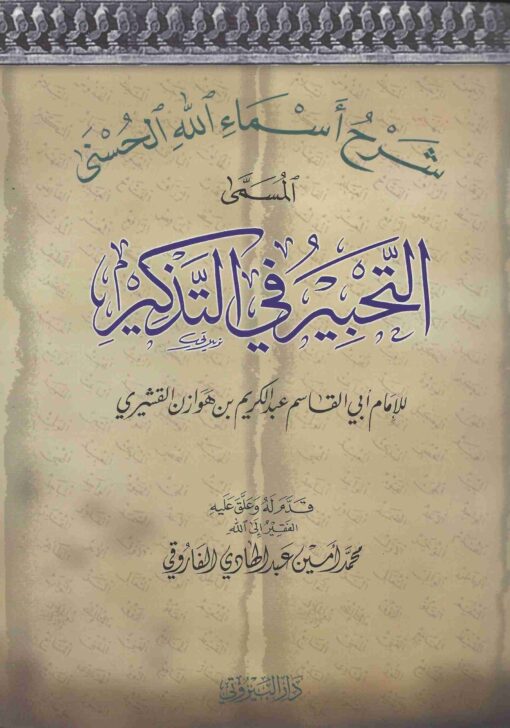 شَرْحُ أَسْمَاءِ اللهِ الحُسْنَى
المُسَمَّى
التَّحْبِيرُ فِي التَّذْكِيرِ
للإمَام أبي القَاسم عبد الكريم بن هَوَازن القشيري
قَدَّمَ لَهُ وَعَلَّقَ عَلَيهِ
الفَقِيرُ إلى الله
محمَّد أمين عَبد الهَادي الفَاروقي
دَارُ البَيرُوتي